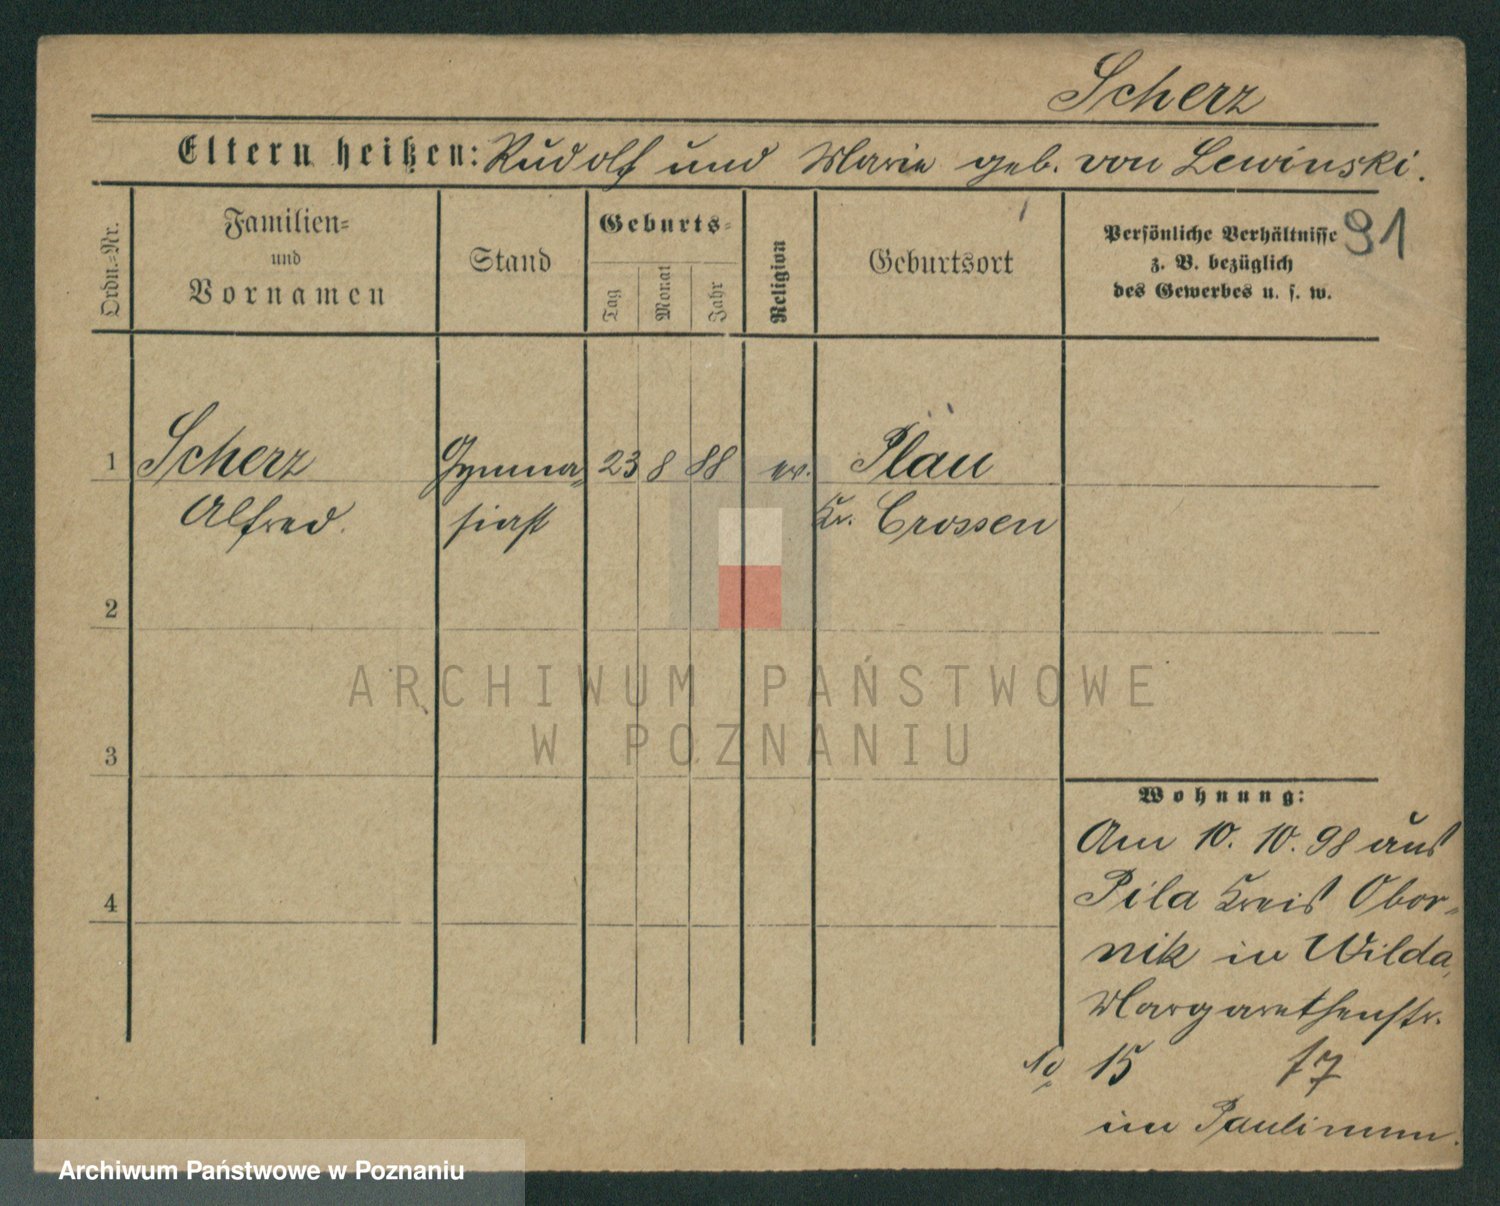 Scherz
Eltern heißen: Rudolf und Marie geb. von Lewinski.
91
Ordn.-Nr.
Familien-
und
Vornamen
Stand
Geburts-
Tag
Monat
Jahr
Religion
Geburtsort
Persönliche Verhältnisse
z. B. bezüglich
des Gewerbes u. s. w.
1 Scherz Gymna- 23 8 88 ev. Pläu
Alfred. siast Kr. Crossen
2
3
4
ARCHIWUM PAŃSTWOWE
W POZNANIU
Wohnung:
Am 10. 10. 98 aus
Pila Kreis Obor-
nik in Wilda,
Margarethenstr.
No 15
im Paulinum.
Archiwum Państwowe w Poznaniu